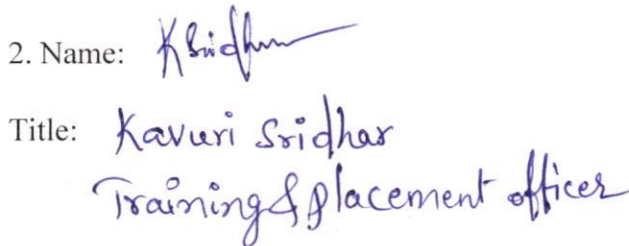 2. Name: K Sridhar
Title: Kavuri Sridhar
Training & Placement officer